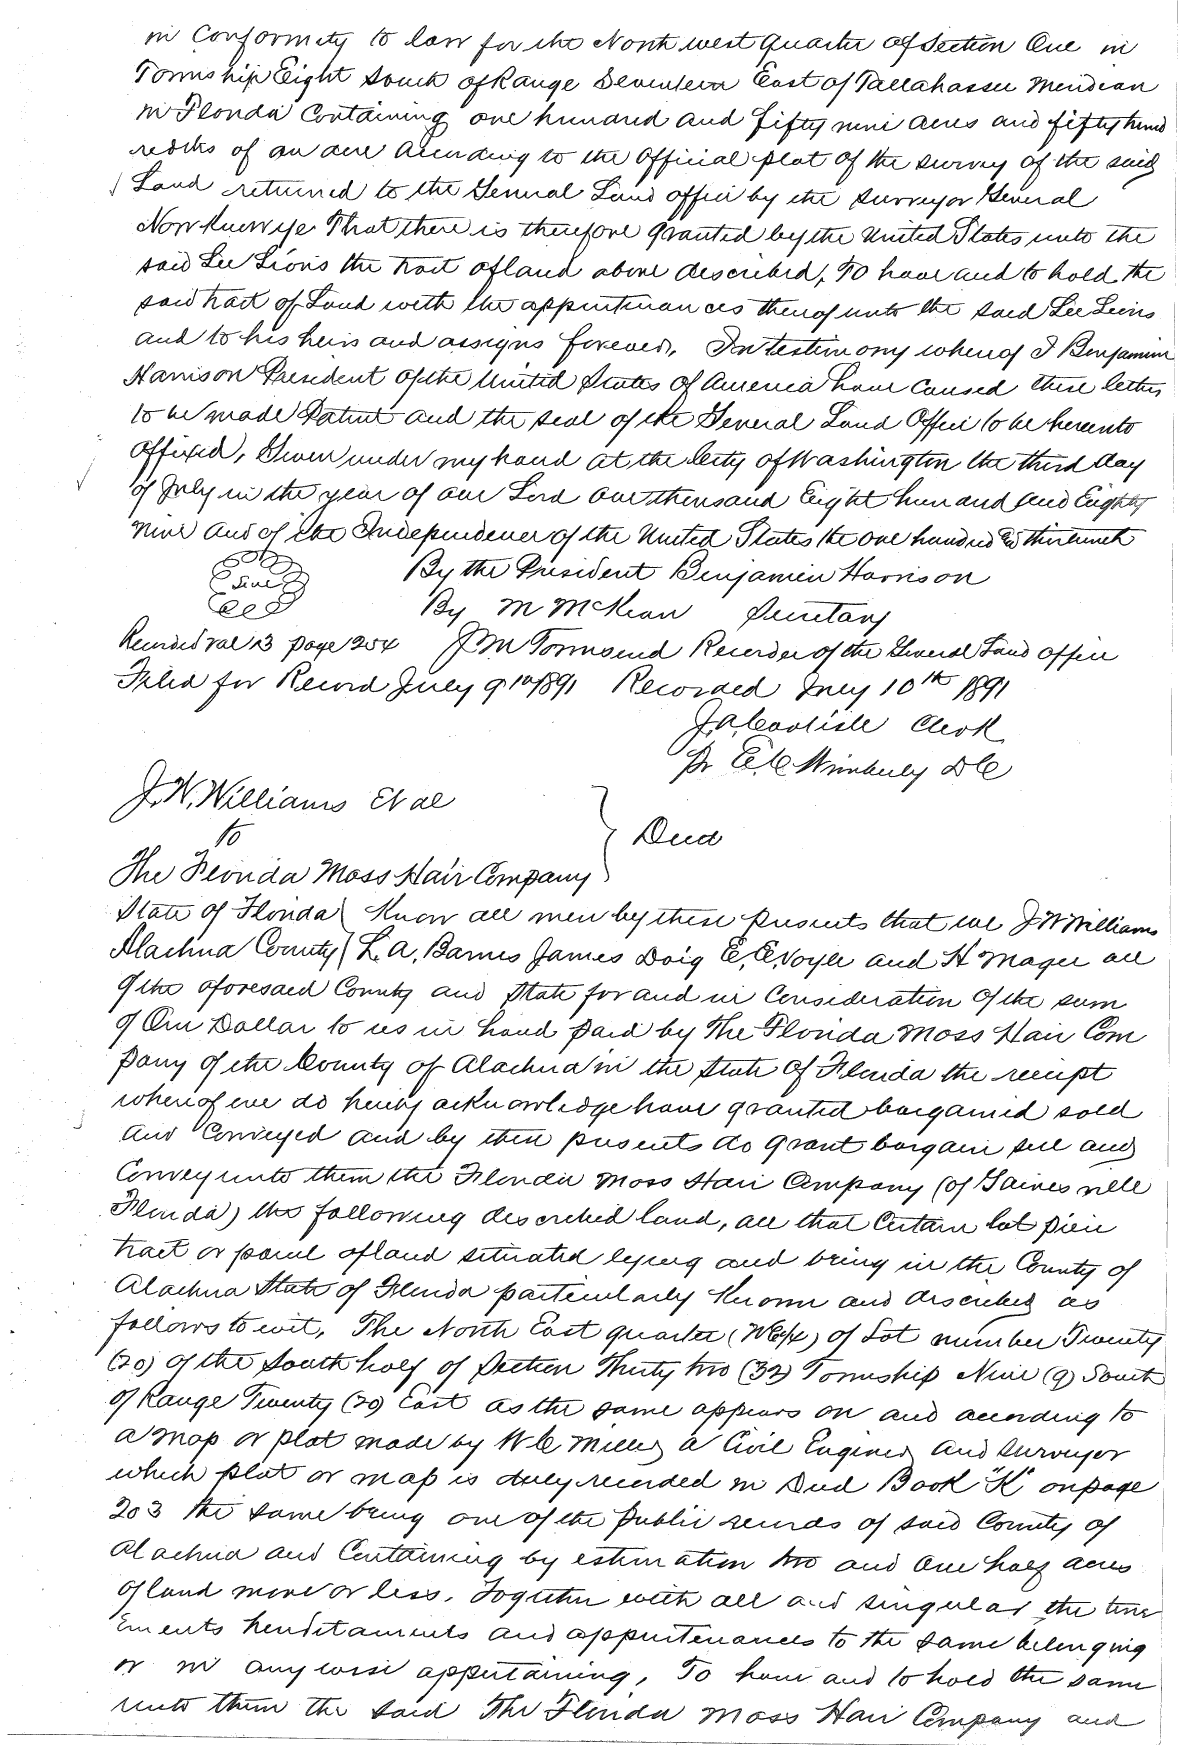 in Conformity to law for the North west Quarter of Section One in
Township Eight South of Range Seventeen East of Tallahassee Meridian
in Florida Containing one hundred and fifty nine acres and fifty hund
redths of an acre According to the Official plat of the survey of the said
Land returned to the General Land office by the surveyor General
Now Know ye That there is therefore granted by the United States unto the
said Lee the tract of land above described, To have and to hold the
said tract of Land with the appurtenances thereof unto the said Lee
and to his heirs and assigns forever, In testimony whereof I Benjamin
Harrison President of the United States of America have caused these letters
to be made Patent and the seal of the General Land Office to be hereunto
affixed, Given under my hand at the City of Washington the third day
of July in the year of our Lord one thousand Eight hundred and Eighty
nine and of the Independence of the United States the one hundred & thirteenth
Seal
By the President Benjamin Harrison
By M McKean Secretary
Recorded Vol 13 page 254 J M Townsend Recorder of the General Land office
Filed for Record July 9th 1891 Recorded July 10th 1891
J.A. Carlisle Clerk
Pr E.C. Wimberly D C
J. W. Williams Et al
to
The Florida Moss Hair Company } Deed
State of Florida } Know all men by these presents that we J W Williams
Alachua County } L. A. Barnes James Doig E. E. Voyle and H Mager all
of the aforesaid County and State for and in Consideration of the sum
of One Dollar to us in hand paid by The Florida Moss Hair Com
pany of the County of Alachua in the State of Florida the receipt
whereof we do hereby acknowledge have granted bargained sold
and Conveyed and by these presents do grant bargain sell and
Convey unto them the Florida Moss Hair Company (of Gainesville
Florida) the following described land, all that Certain lot piece
tract or parcel of land situated lying and being in the County of
Alachua State of Florida particularly Known and described as
follows to wit, The North East quarter (NE/4) of Lot number Twenty
(20) of the South half of Section Thirty two (32) Township Nine (9) South
of Range Twenty (20) East as the same appears on and according to
a map or plat made by W C Miller a Civil Engineer and Surveyor
which plat or map is duly recorded in Deed Book "K" on page
203 the same being one of the public records of said County of
Alachua and Containing by estimation two and One half acres
of land more or less, Together with all and singular the tene
ements hereditaments and appurtenances to the same belonging
or in any wise appertaining, To have and to hold the same
unto them the said The Florida Moss Hair Company and